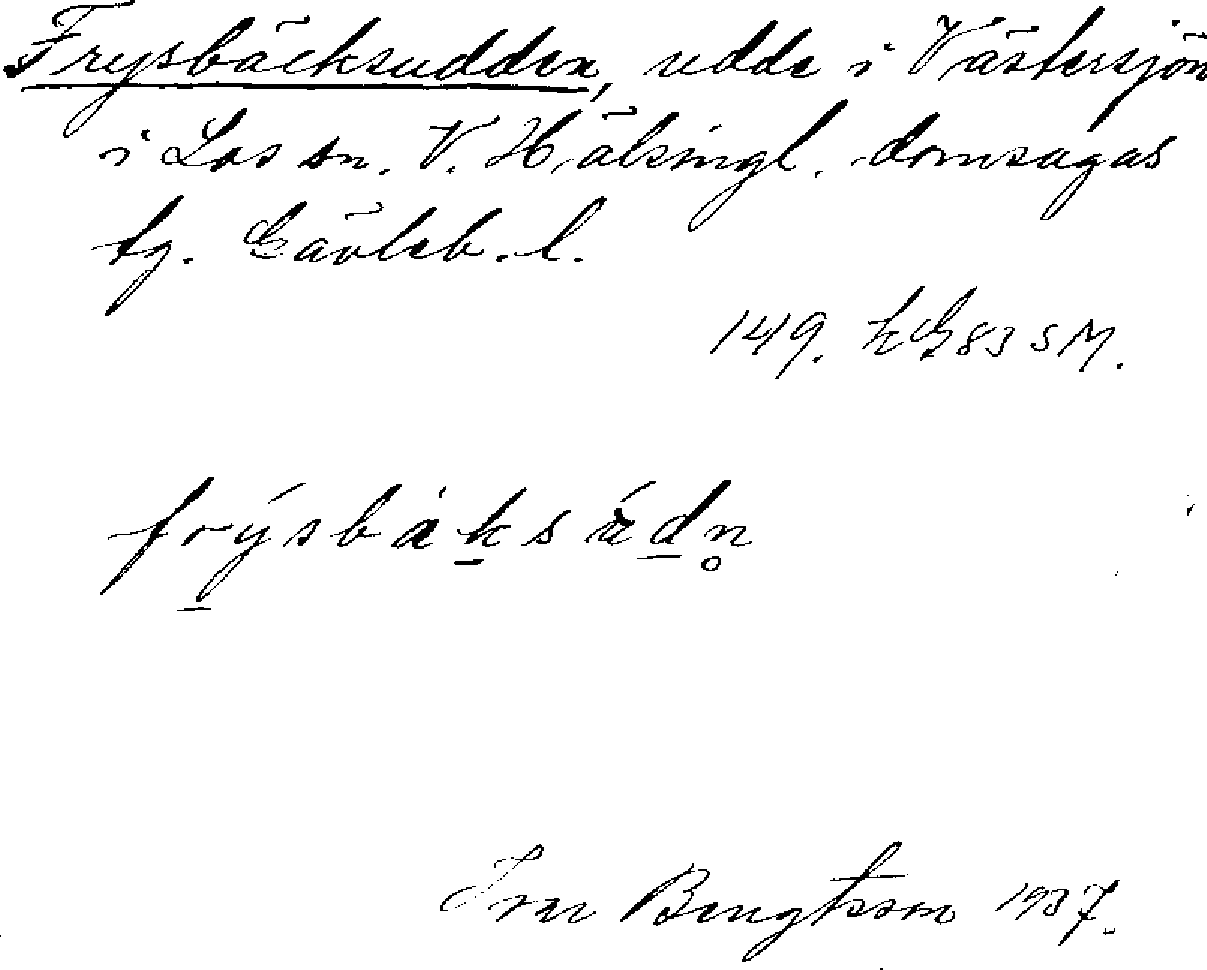 Frysbäcksudden, udde i Västersjön
i Los sn. V. Hälsingl. domsagas
tg. Gävleb. l.
149. kG 83 SM.
frýsbàksùdn̥
Ivar Bengtsson 1937.